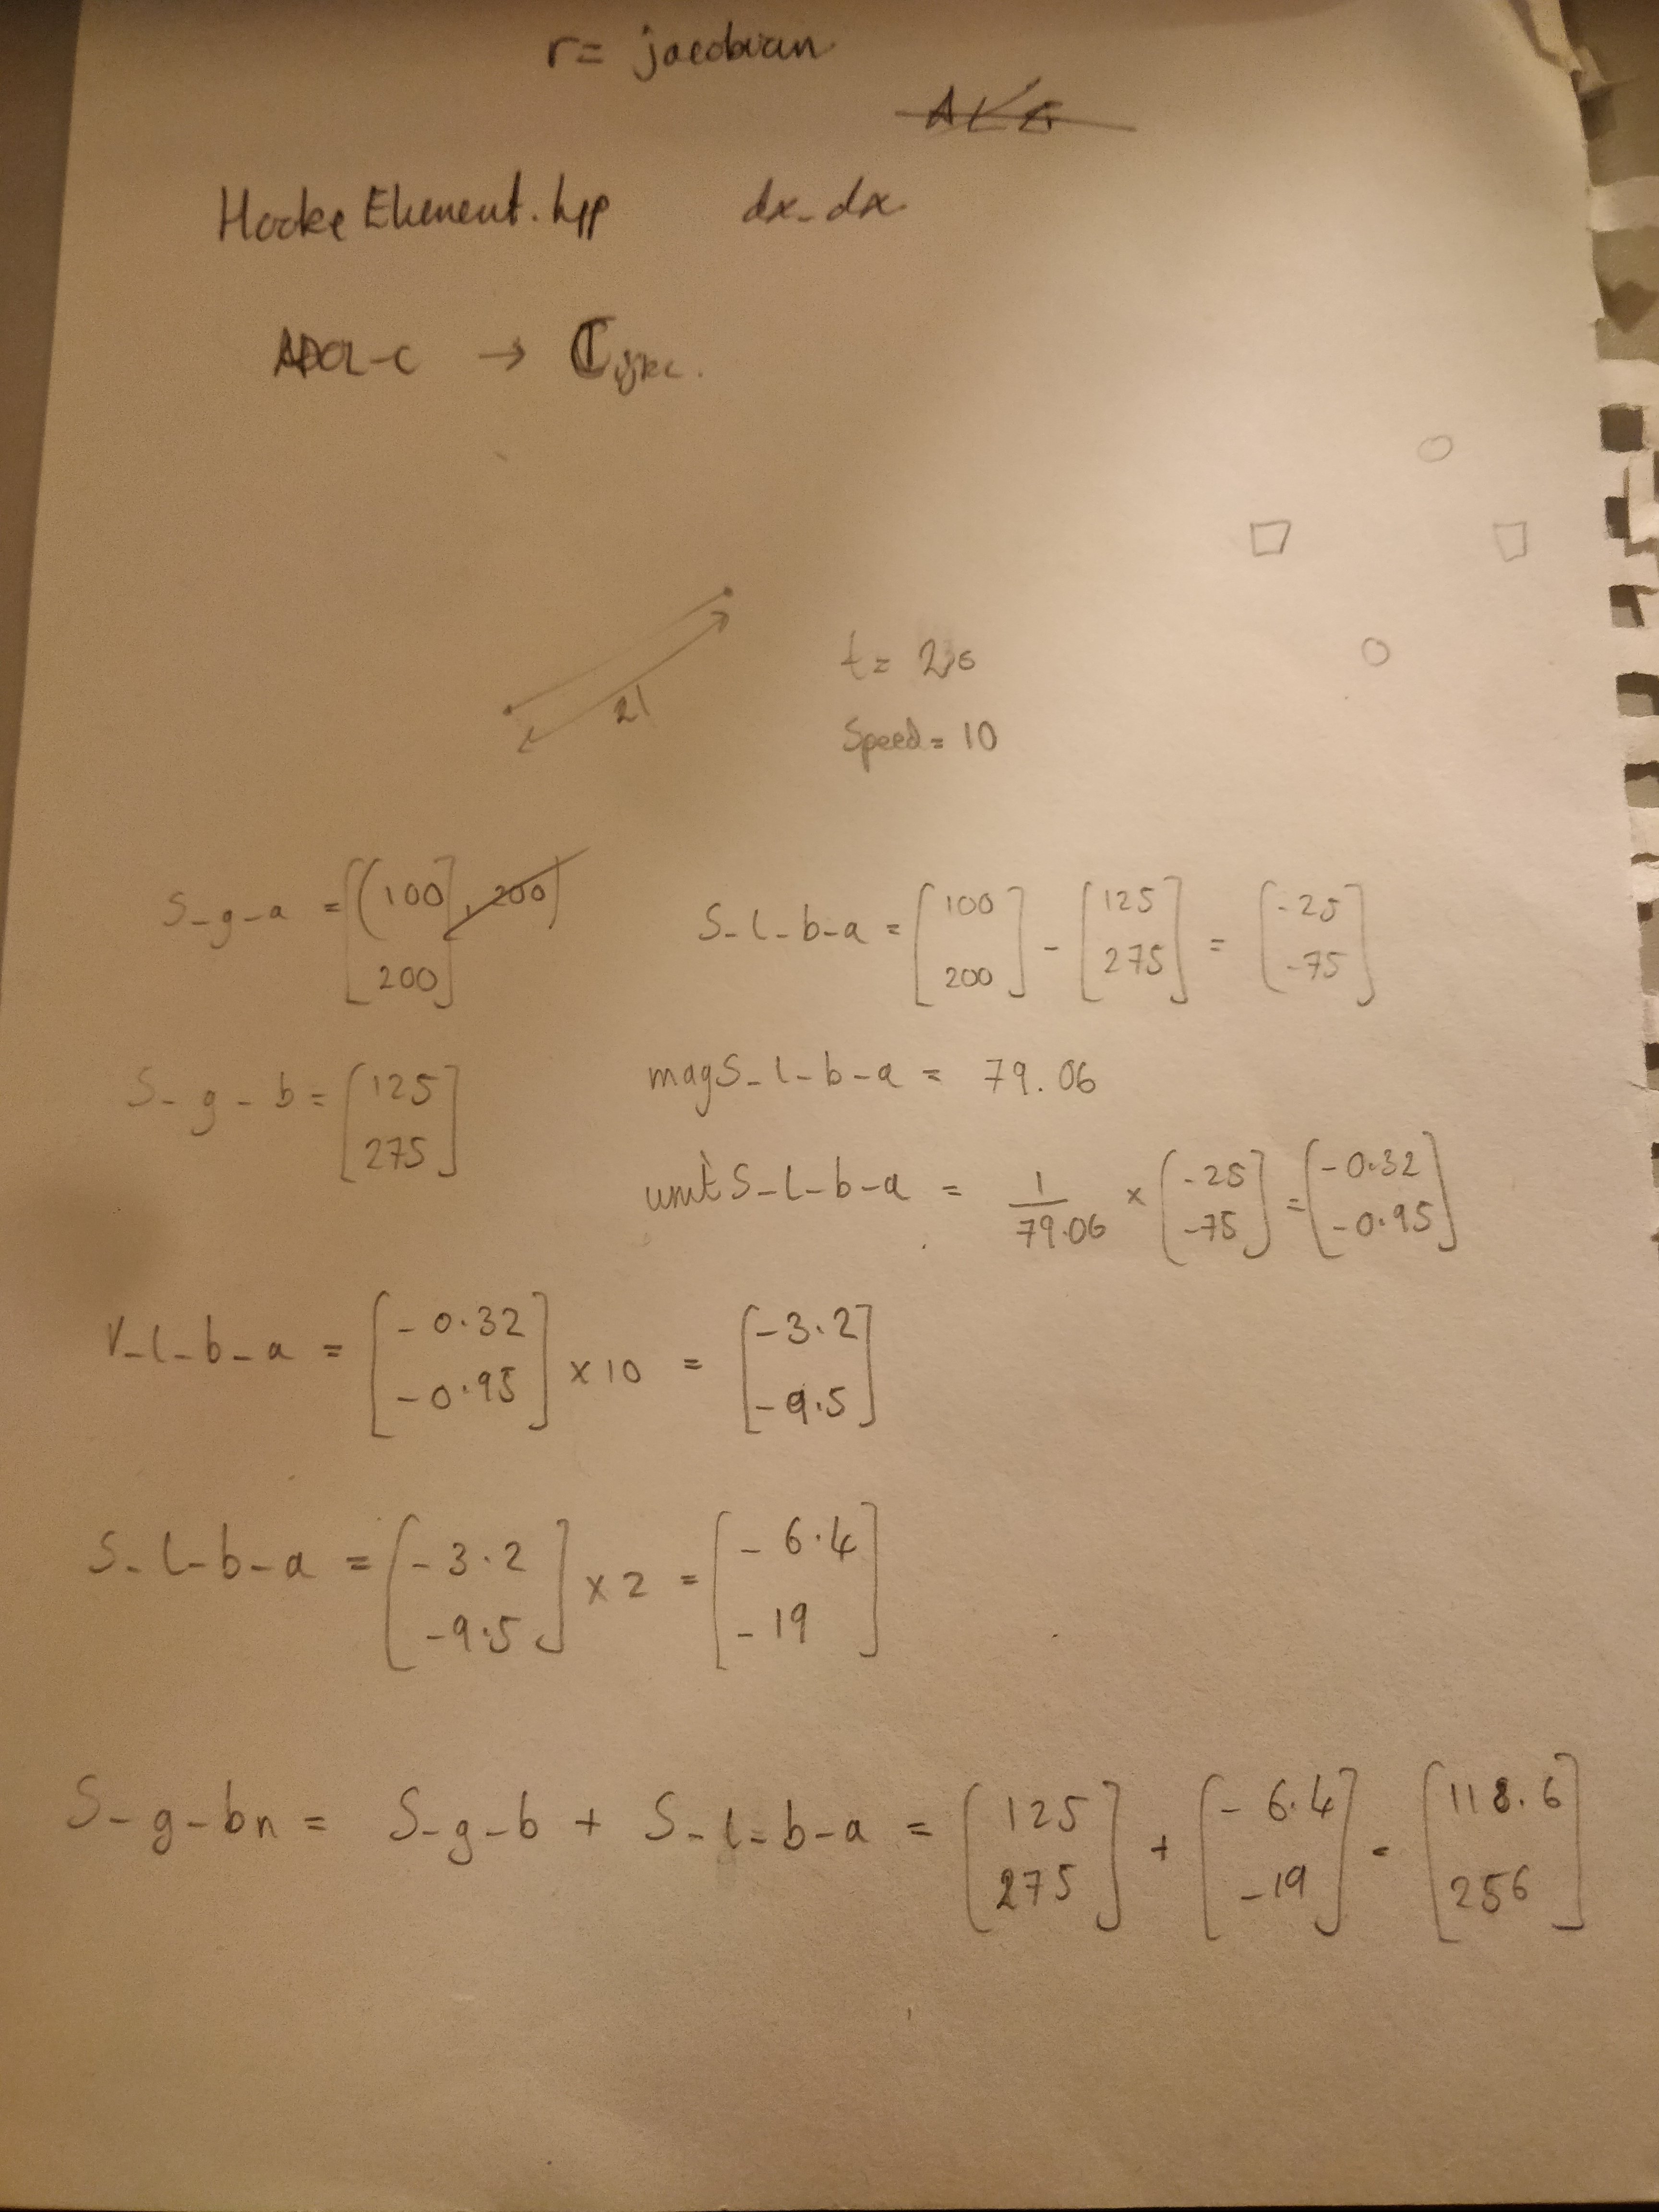 r = jacobian
HookeElement.hpp dx_dx
ADOL-C → C
2l
t = 2s
Speed = 10
S_g_a = [100 200]
S_l_b_a = [100 200] - [125 275] = [-25 -75]
S_g_b = [125 275]
magS_l_b_a = 79.06
unitS_l_b_a = 1/79.06 × [-25 -75] = [-0.32 -0.95]
V_l_b_a = [-0.32 -0.95] × 10 = [-3.2 -9.5]
S_l_b_a = [-3.2 -9.5] × 2 = [-6.4 -19]
S_g_bn = S_g_b + S_l_b_a = [125 275] + [-6.4 -19] = [118.6 256]